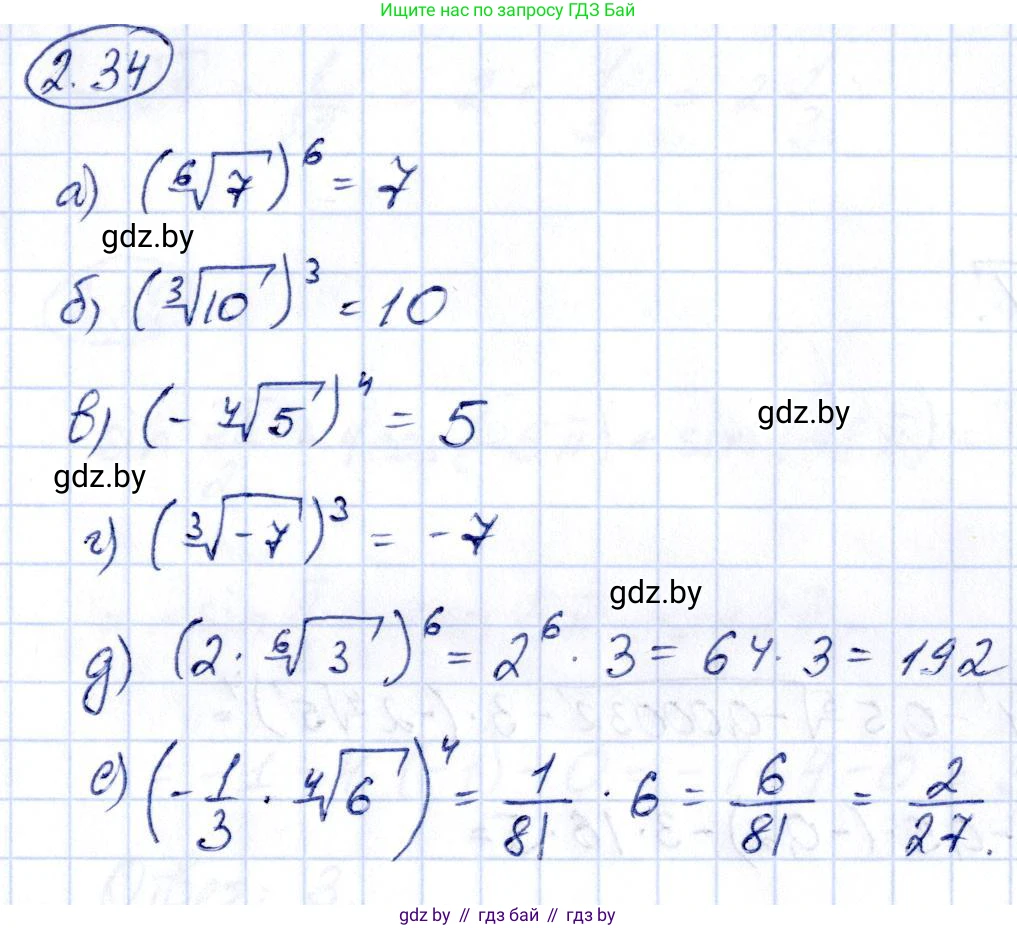 Ищите нас по запросу ГДЗ Бай
2.34
а) (⁶√7)⁶ = 7
gdz.by
б) (³√10)³ = 10
в) (- ⁴√5)⁴ = 5
gdz.by
gdz.by
г) (³√-7)³ = -7
gdz.by
д) (2 · ⁶√3)⁶ = 2⁶ · 3 = 64 · 3 = 192
е) (- 1/3 · ⁴√6)⁴ = 1/81 · 6 = 6/81 = 2/27.
gdz.by // гдз бай // гдз by